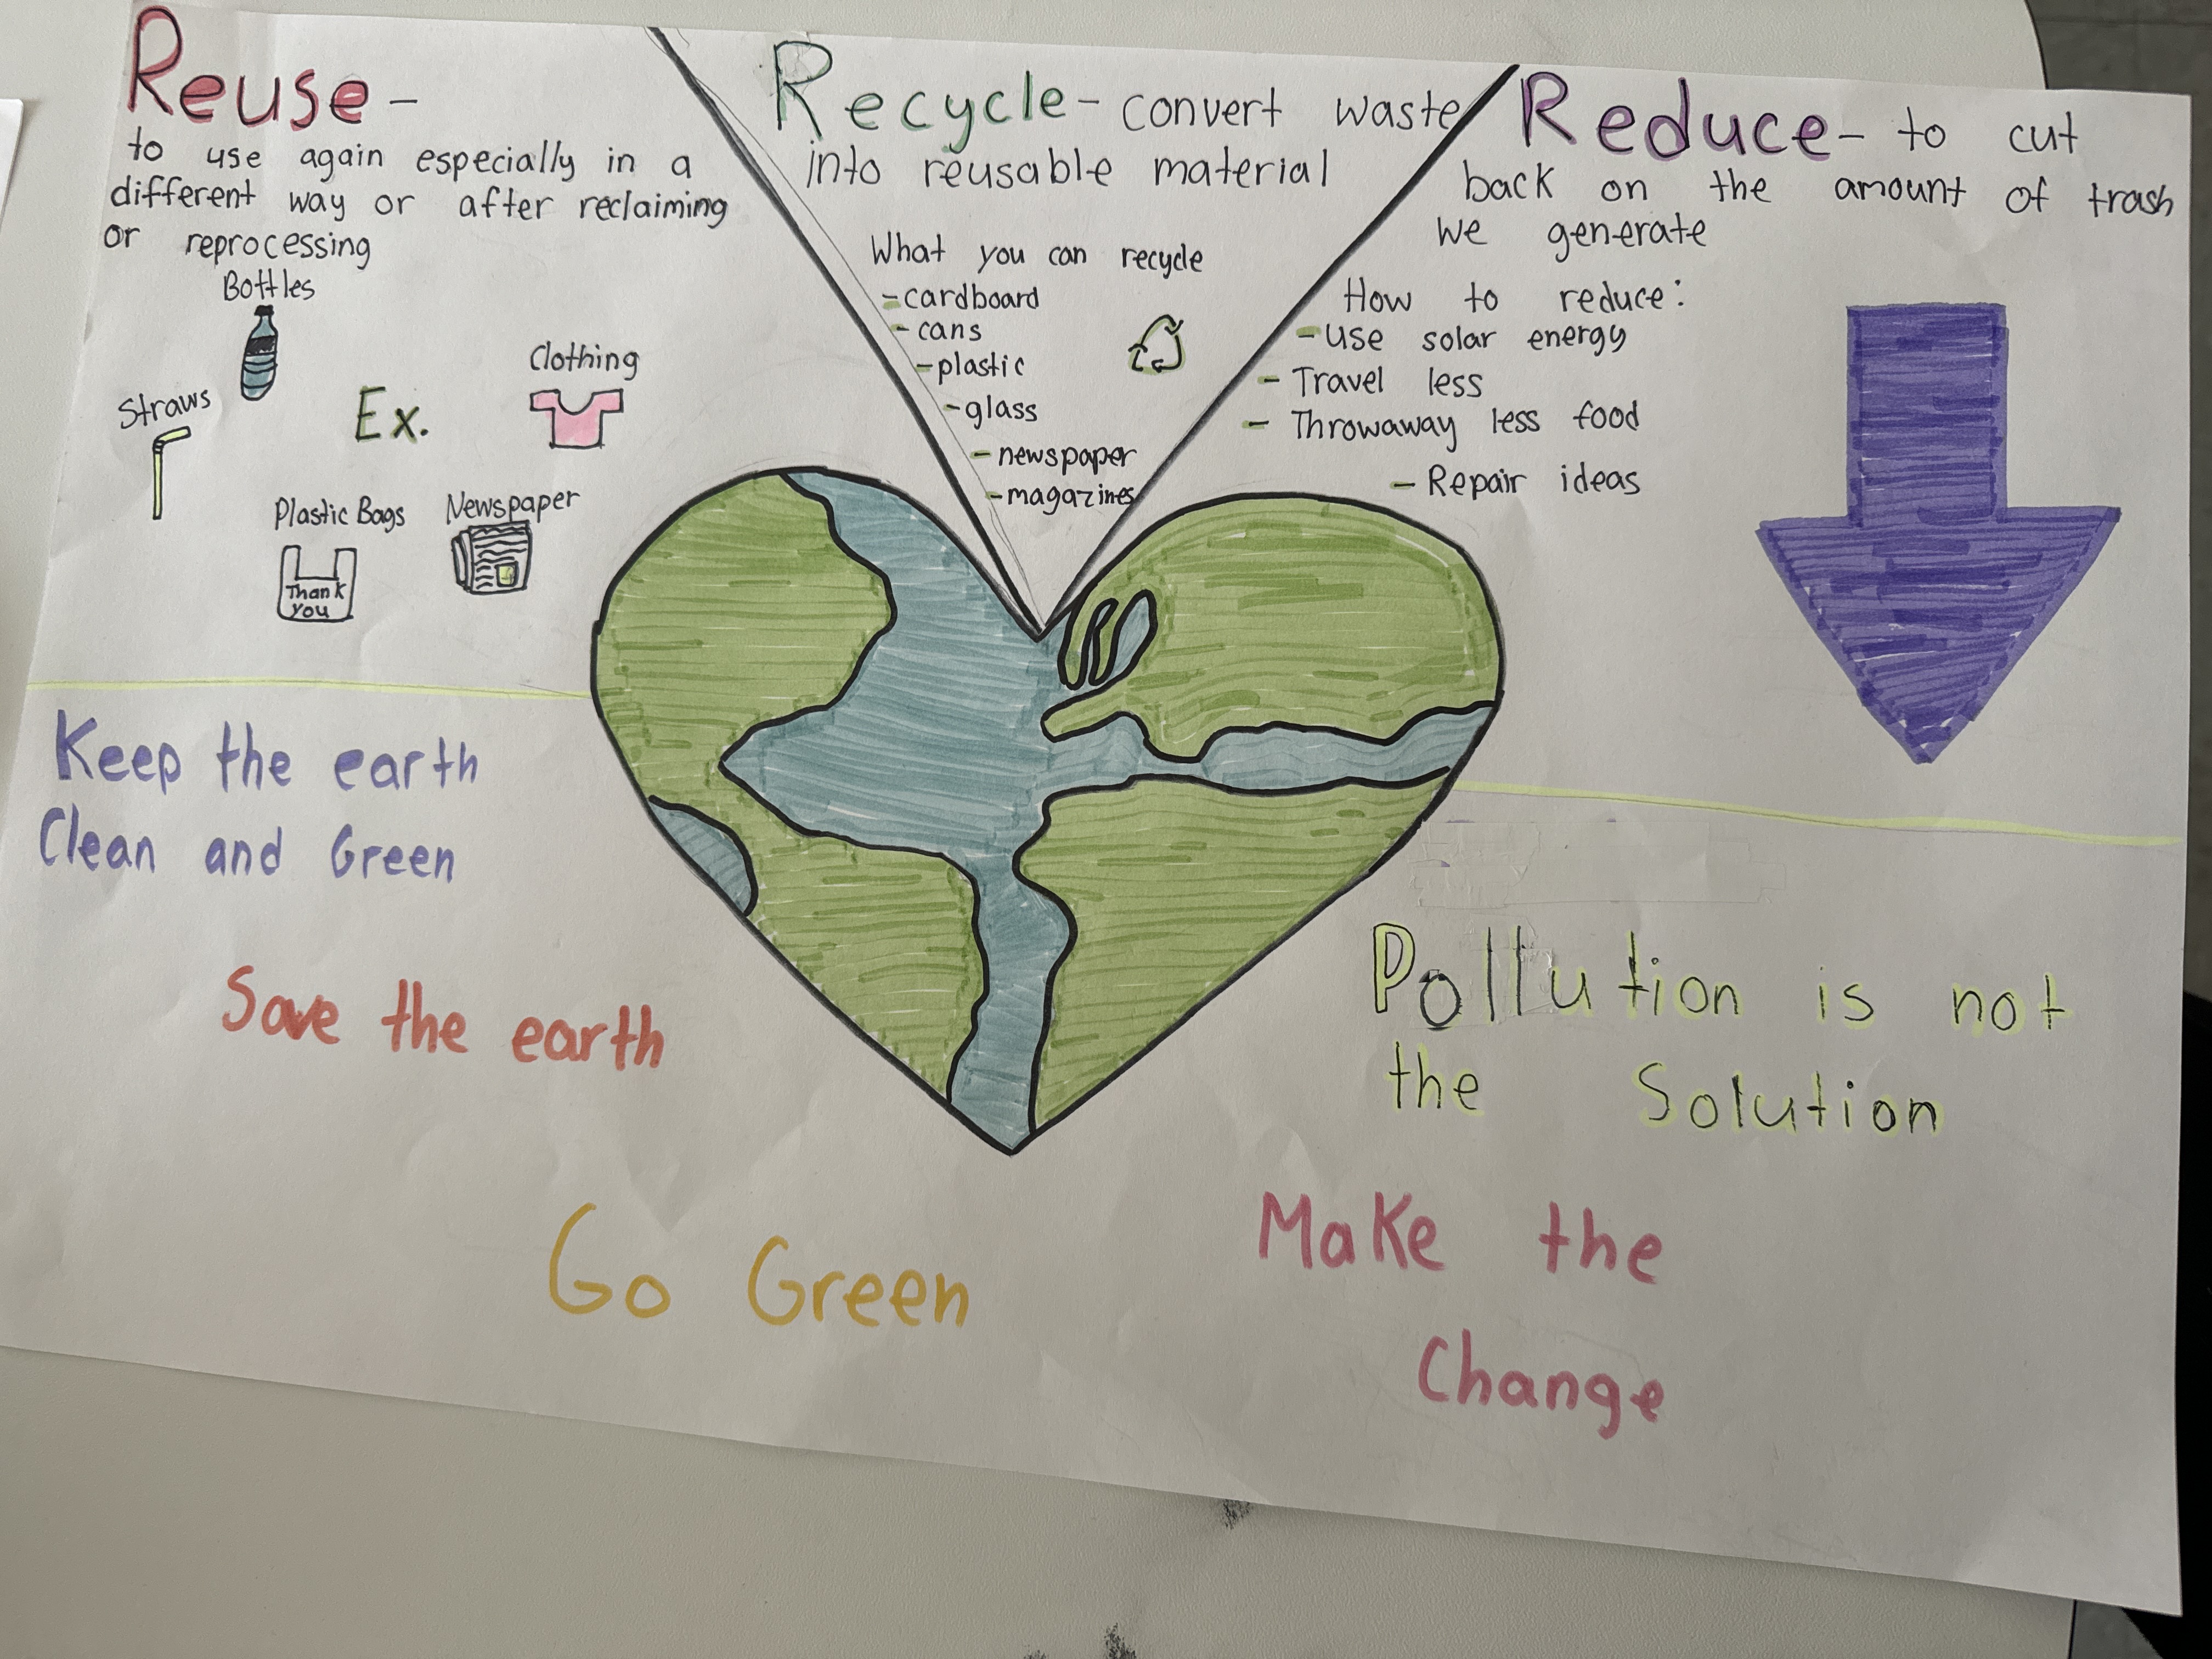 Reuse -
to use again especially in a
different way or after reclaiming
or reprocessing
Bottles
Straws
Ex.
Clothing
Plastic Bags
Thank
you
Newspaper
Recycle - convert waste
into reusable material
What you can recycle
- cardboard
- cans
- plastic
- glass
- newspaper
- magazines
Reduce - to cut
back on the amount of trash
we generate
How to reduce:
- Use solar energy
- Travel less
- Throwaway less food
- Repair ideas
Keep the earth
Clean and Green
Save the earth
Go Green
Pollution is not
the Solution
Make the
Change